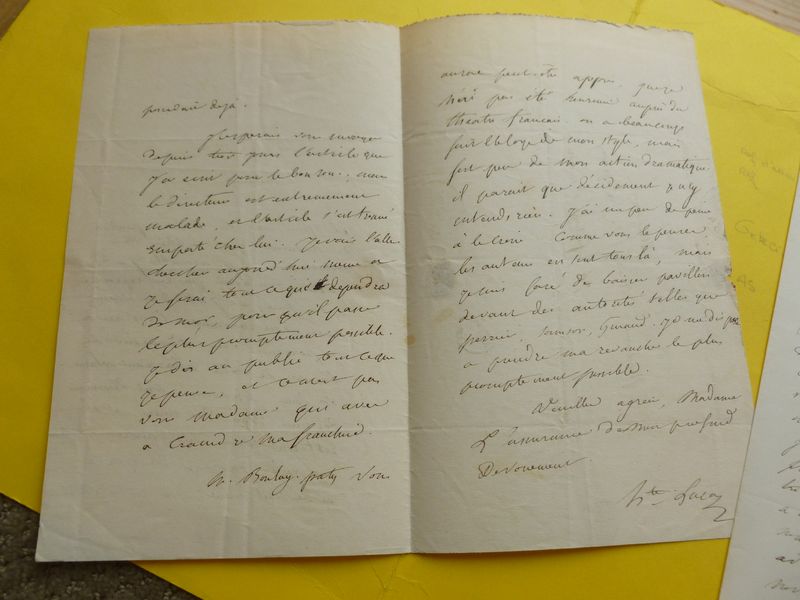 possedait déjà.
J'esperais vous envoyer
depuis trois jours l'article que
j'ai écrit pour le bon sens, mais
le directeur est extremement
malade, et l'article s'est trouvé
emporté chez lui. Je vais l'aller
chercher aujourd'hui meme et
je ferai tout ce qui dependra
de moi, pour qu'il passe
le plus promptement possible.
Je dis au public tout ce que
je pense, et ce n'est pas
vous madame qui avez
a craindre ma franchise.
M. Boulay-paty vous
aura peut-être appris, que je
n'ai pas été heureux auprès du
theatre francais. on a beaucoup
fait l'éloge de mon style, mais
fort peu de mon action dramatique.
il parait que décidement je n'y
entends rien. J'ai un peu de peine
à le croire comme vous le pensez.
les auteurs en sont tous là, mais
je suis forcé de baisser pavillon
devant des autorités telles que
perrier, samson, Guiaud. Je me dispose
a prendre ma revanche le plus
promptement possible.
Veuillez agréer, Madame
L'assurance de mon profond
Devouement.
Hte Lucas